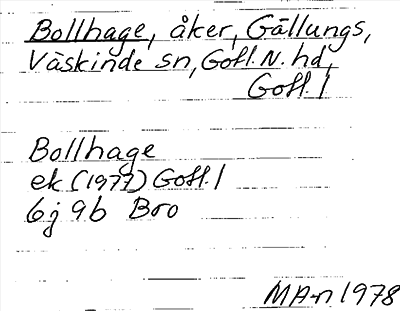 Bollhage, åker, Gällungs,
Väskinde sn, Gotl. N. hd,
Gotl. l
Bollhage
ek (1977) Gotl. l
6j 9b Bro
MA-n 1978